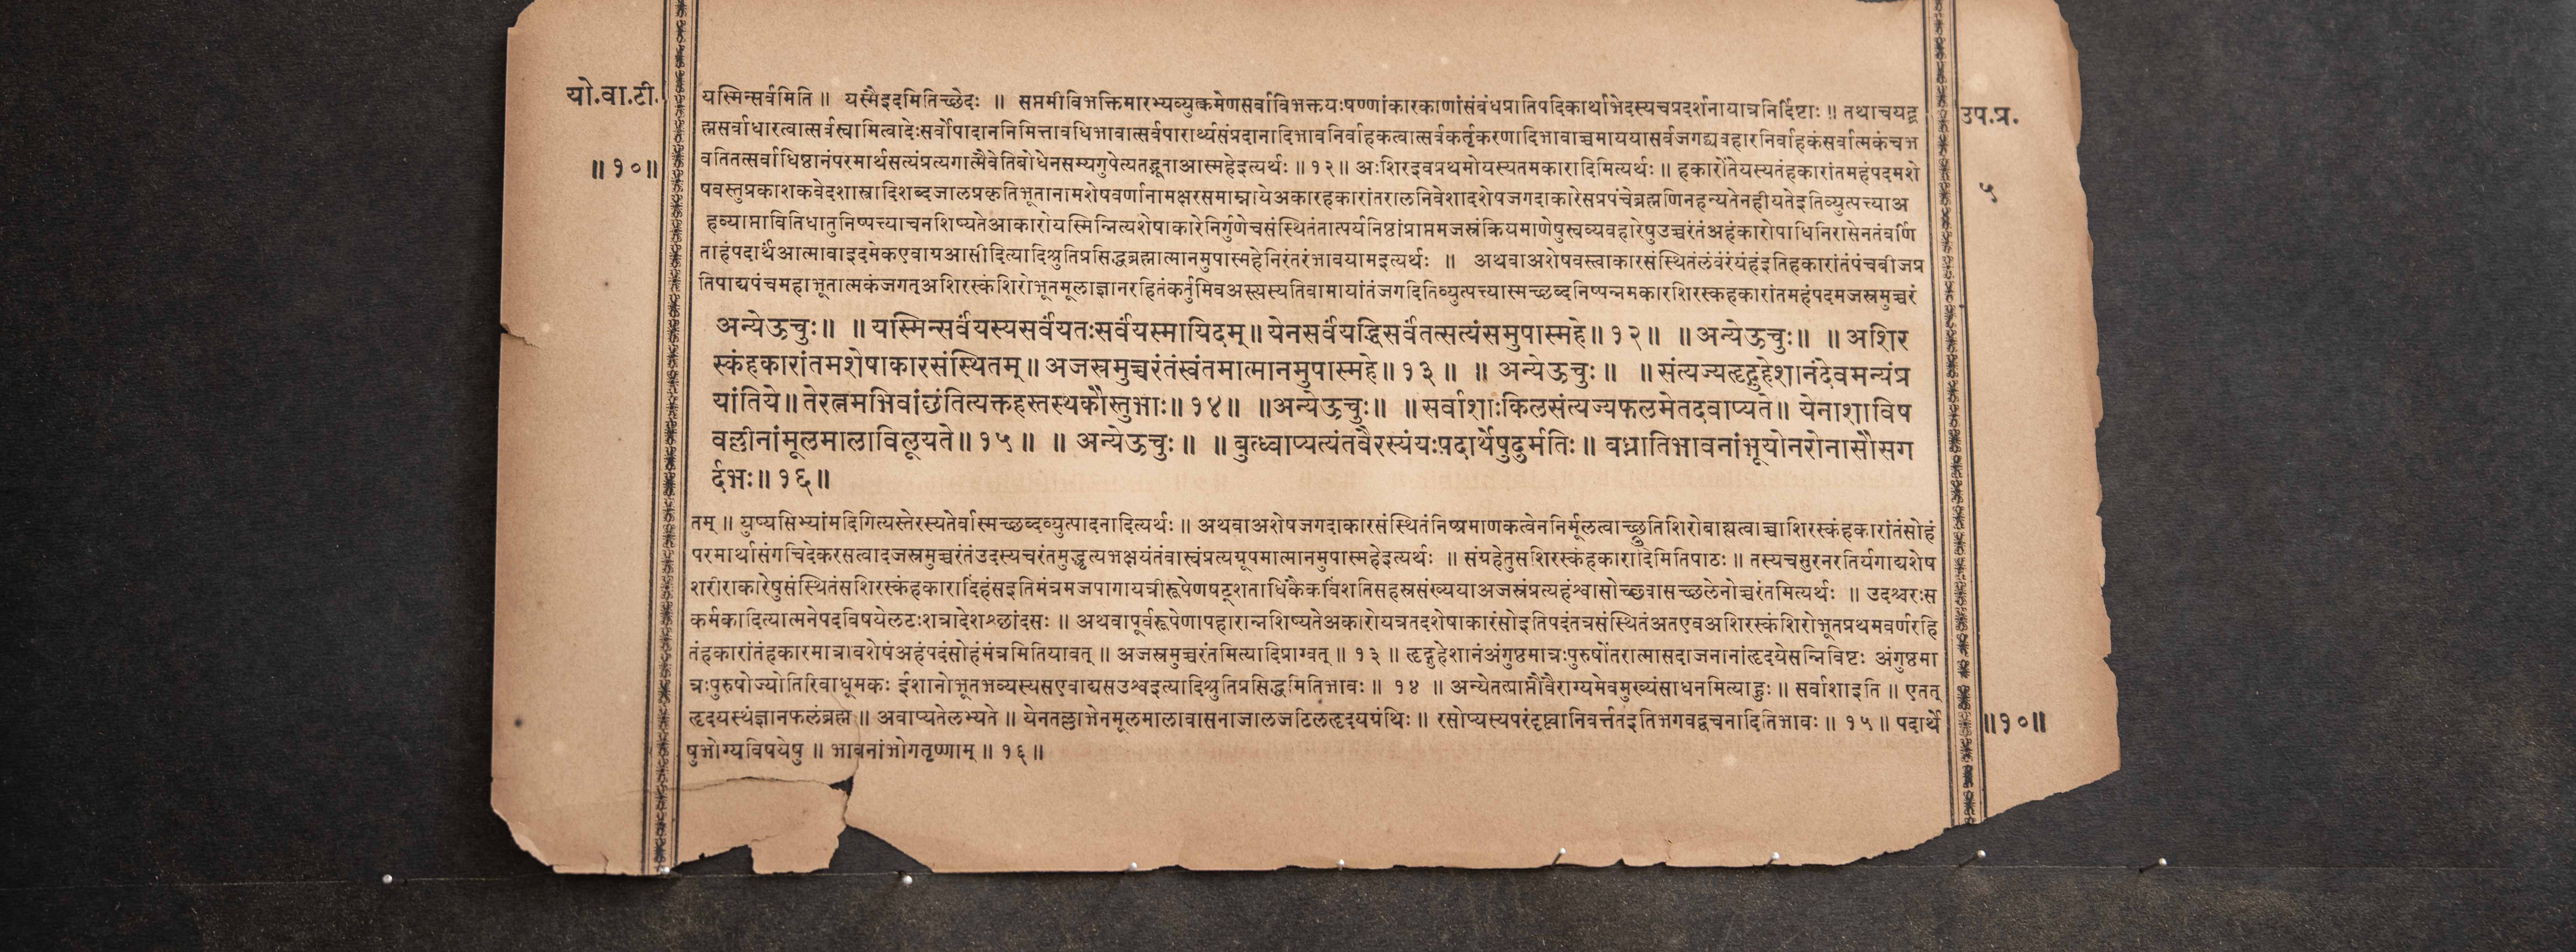 यो.वा.टी.
॥१०॥
यस्मिन्सर्वमिति ॥ यस्मैइदमितिच्छेदः ॥ सप्तमीविभक्तिमारभ्यव्युत्क्रमेणसर्वाविभक्तयःषण्णांकारकाणांसंबंधप्रातिपदिकार्थाभेदस्यचप्रदर्शनायात्रनिर्दिष्टाः ॥ तथाचयद्ब्र
ह्मसर्वाधारत्वात्सर्वस्वामित्वादेःसर्वोपादाननिमित्तावधिभावात्सर्वपारार्थ्यसंप्रदानादिभावनिर्वाहकत्वात्सर्वकर्तृकरणादिभावाच्चमाययासर्वजगद्व्यवहारनिर्वाहकंसर्वात्मकंचभ
वतितत्सर्वाधिष्ठानंपरमार्थसत्यंप्रत्यगात्मैवेतिबोधेनसम्यगुपेत्यतद्भूताआस्महेइत्यर्थः ॥ १२ ॥ अःशिरइवप्रथमोयस्यतमकारादिमित्यर्थः ॥ हकारोंतेयस्यतंहकारांतमहंपदमशे
षवस्तुप्रकाशकवेदशास्त्रादिशब्दजालप्रकृतिभूतानामशेषवर्णानामक्षरसमाम्नायेअकारहकारांतरालनिवेशादशेषजगदाकारेसप्रपंचेब्रह्मणिनहन्यतेनहीयतेइतिव्युत्पत्त्याअ
हव्याप्तावितिधातुनिष्पत्त्याचनशिष्यतेआकारोयस्मिन्नित्यशेषाकारेनिर्गुणेचसंस्थितंतात्पर्यनिष्ठांप्राप्तमजस्रंक्रियमाणेषुस्वव्यवहारेषुउच्चरंतंअहंकारोपाधिनिरासेनतंवर्णि
ताहंपदार्थंआत्मावाइदमेकएवाग्रआसीदित्यादिश्रुतिप्रसिद्धब्रह्मात्मानमुपास्महेनिरंतरंभावयामइत्यर्थः ॥ अथवाअशेषवस्त्वाकारसंस्थितंलंवंरंयंहंइतिहकारांतंपंचबीजप्र
तिपाद्यपंचमहाभूतात्मकंजगत्अशिरस्कंशिरोभूतमूलाज्ञानरहितंकर्तुमिवअस्यस्यतिवामायांतंजगदितिव्युत्पत्त्यास्मच्छब्दनिष्पन्नमकारशिरस्कहकारांतमहंपदमजस्रमुच्चरं
अन्येऊचुः॥ ॥ यस्मिन्सर्वंयस्यसर्वंयतःसर्वंयस्मायिदम्॥ येनसर्वंयद्धिसर्वंतत्सत्यंसमुपास्महे॥ १२॥ ॥ अन्येऊचुः॥ ॥ अशिर
स्कंहकारांतमशेषाकारसंस्थितम्॥ अजस्रमुच्चरंतंस्वंतमात्मानमुपास्महे॥ १३॥ ॥ अन्येऊचुः॥ ॥ संत्यज्यहृद्गुहेशानंदेवमन्यंप्र
यांतिये॥ तेरत्नमभिवांछंतित्यक्तहस्तस्थकौस्तुभाः॥ १४॥ ॥अन्येऊचुः॥ ॥ सर्वाशाःकिलसंत्यज्यफलमेतदवाप्यते॥ येनाशाविष
वल्लीनांमूलमालाविलूयते॥ १५॥ ॥ अन्येऊचुः॥ ॥ बुध्वाप्यत्यंतवैरस्यंयःपदार्थेषुदुर्मतिः॥ बध्नातिभावनांभूयोनरोनासौसग
र्दभः॥ १६॥
तम् ॥ युष्यसिभ्यांमदिगित्यस्तेरस्यतेर्वास्मच्छब्दव्युत्पादनादित्यर्थः ॥ अथवाअशेषजगदाकारसंस्थितंनिष्प्रमाणकत्वेननिर्मूलत्वाच्छ्रुतिशिरोबाह्यत्वाच्चाशिरस्कंहकारांतंसोहं
परमार्थासंगचिदेकरसत्वादजस्रमुच्चरंतंउदस्यचरंतमुद्धृत्यभक्षयंतंवास्वंप्रत्यग्रूपमात्मानमुपास्महेइत्यर्थः ॥ संग्रहेतुसशिरस्कंहकारादिमितिपाठः ॥ तस्यचसुरनरतिर्यगाद्यशेष
शरीराकारेषुसंस्थितंसशिरस्कंहकारादिंहंसइतिमंत्रमजपागायत्रीरूपेणषट्शताधिकैकविंशतिसहस्रसंख्ययाअजस्रंप्रत्यहंश्वासोच्छ्वासच्छलेनोच्चरंतमित्यर्थः ॥ उदश्चरःस
कर्मकादित्यात्मनेपदविषयेलटःशत्रादेशश्छांदसः ॥ अथवापूर्वरूपेणापहारान्नशिष्यतेअकारोयत्रतदशेषाकारंसोइतिपदंतत्रसंस्थितंअतएवअशिरस्कंशिरोभूतप्रथमवर्णरहि
तंहकारांतंहकारमात्रावशेषंअहंपदंसोहंमंत्रमितियावत् ॥ अजस्रमुच्चरंतमित्यादिप्राग्वत् ॥ १३ ॥ हृद्गुहेशानंअंगुष्ठमात्रःपुरुषोंतरात्मासदाजनानांहृदयेसन्निविष्टः अंगुष्ठमा
त्रःपुरुषोज्योतिरिवाधूमकः ईशानोभूतभव्यस्यसएवाद्यसउश्वइत्यादिश्रुतिप्रसिद्धमितिभावः ॥ १४ ॥ अन्येतत्प्राप्तौवैराग्यमेवमुख्यंसाधनमित्याहुः ॥ सर्वाशाइति ॥ एतत्
हृदयस्थंज्ञानफलंब्रह्म ॥ अवाप्यतेलभ्यते ॥ येनतल्लाभेनमूलमालावासनाजालजटिलहृदयग्रंथिः ॥ रसोप्यस्यपरंदृष्ट्वानिवर्त्ततइतिभगवद्वचनादितिभावः ॥ १५ ॥ पदार्थे
षुभोग्यविषयेषु ॥ भावनांभोगतृष्णाम् ॥ १६ ॥
उप.प्र.
५
॥१०॥